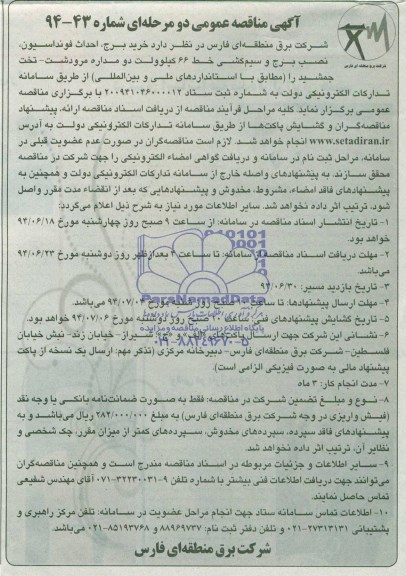 آگهی مناقصه عمومی دو مرحله‌ای شماره ۴۳-۹۴
شرکت برق منطقه‌ای فارس
شرکت برق منطقه‌ای فارس در نظر دارد خرید برج، احداث فونداسیون،
نصب برج و سیم‌کشی خط ۶۶ کیلوولت دو مداره مرودشت- تخت
جمشید را (مطابق با استانداردهای ملی و بین‌المللی) از طریق سامانه
تدارکات الکترونیکی دولت به شماره ثبت ستاد ۲۰۰۹۴۱۰۳۶۰۰۰۰۱۲ با برگزاری مناقصه
عمومی برگزار نماید. کلیه مراحل فرآیند مناقصه از دریافت اسناد مناقصه ارائه، پیشنهاد
مناقصه‌گران و گشایش پاکت‌ها از طریق سامانه تدارکات الکترونیکی دولت به آدرس
www.setadiran.ir انجام خواهد شد. لازم است مناقصه‌گران در صورت عدم عضویت قبلی در
سامانه، مراحل ثبت نام در سامانه و دریافت گواهی امضاء الکترونیکی را جهت شرکت در مناقصه
محقق سازند. به پیشنهادهای واصله خارج از سامانه تدارکات الکترونیکی دولت و همچنین به
پیشنهادهای فاقد امضاء، مشروط، مخدوش و پیشنهادهایی که بعد از انقضاء مدت مقرر واصل
شود، ترتیب اثر داده نخواهد شد. سایر اطلاعات مورد نیاز به شرح ذیل اعلام می‌گردد:
۱- تاریخ انتشار اسناد مناقصه در سامانه: از ساعت ۹ صبح روز چهارشنبه مورخ ۹۴/۰۶/۱۸
خواهد بود.
۲- مهلت دریافت اسناد مناقصه از سامانه: تا ساعت ۴ بعدازظهر روز دوشنبه مورخ ۹۴/۰۶/۲۳
می‌باشد.
۳- تاریخ بازدید مسیر: ۹۴/۰۶/۳۰
۴- مهلت ارسال پیشنهادها: تا ساعت ۱۰ صبح روز شنبه مورخ ۹۴/۰۷/۰۴ می‌باشد.
۵- تاریخ گشایش پیشنهادهای فنی: ساعت ۱۰ صبح روز دوشنبه مورخ ۹۴/۰۷/۰۶ خواهد بود.
۶- نشانی این شرکت جهت ارسال پاکت‌های «الف» و «ج»: شیراز- خیابان زند- نبش خیابان
فلسطین- شرکت برق منطقه‌ای فارس- دبیرخانه مرکزی (تذکر مهم: ارسال یک نسخه از پاکت
پیشنهاد مالی به صورت فیزیکی الزامی است).
۷- مدت انجام کار: ۳ ماه
۸- نوع و مبلغ تضمین شرکت در مناقصه: فقط به صورت ضمانت‌نامه بانکی یا وجه نقد
(فیش واریزی در وجه شرکت برق منطقه‌ای فارس) به مبلغ ۲۸۲/۰۰۰/۰۰۰ ریال می‌باشد و به
پیشنهادهای فاقد سپرده، سپرده‌های مخدوش، سپرده‌های کمتر از میزان مقرر، چک شخصی و
نظایر آن، ترتیب اثر داده نخواهد شد.
۹- سایر اطلاعات و جزئیات مربوطه در اسناد مناقصه مندرج است و همچنین مناقصه‌گران
می‌توانند جهت دریافت اطلاعات فنی بیشتر با شماره تلفن ۹-۳۲۲۳۰۰۳۱-۰۷۱ آقای مهندس شفیعی
تماس حاصل نمایند.
۱۰- اطلاعات تماس سامانه ستاد جهت انجام مراحل عضویت در سامانه: تلفن مرکز راهبری و
پشتیبانی ۲۷۳۱۳۱۳۱-۰۲۱ و تلفن دفتر ثبت نام: ۸۸۹۶۹۷۳۷ و ۸۵۱۹۳۷۶۸-۰۲۱ می‌باشد.
شرکت برق منطقه‌ای فارس
ParsNamadData
پایگاه اطلاع‌رسانی مناقصه و مزایده
۰۲۱-۸۸۳۴۹۶۷۰-۵